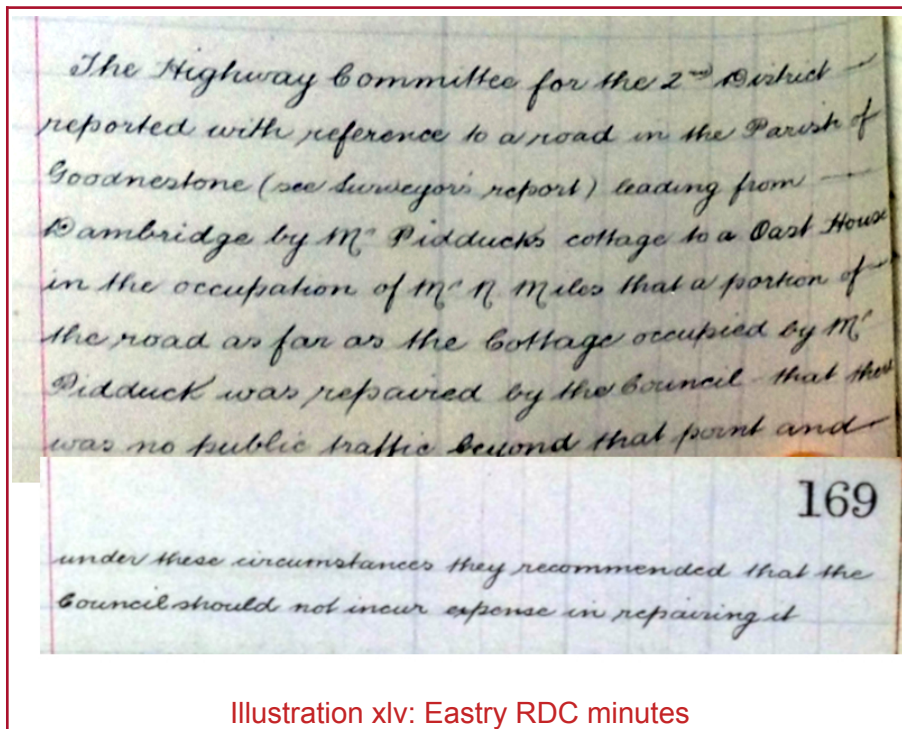 The Highway Committee for the 2nd District
reported with reference to a road in the Parish of
Goodnestone (see Surveyor's report) leading from
Dambridge by Mr Pidducks cottage to a Oast House
in the occupation of Mr N. Miles that a portion of
the road as far as the Cottage occupied by Mr
Pidduck was repaired by the Council that there
was no public traffic beyond that point and
169
under these circumstances they recommended that the
Council should not incur expense in repairing it
Illustration xlv: Eastry RDC minutes